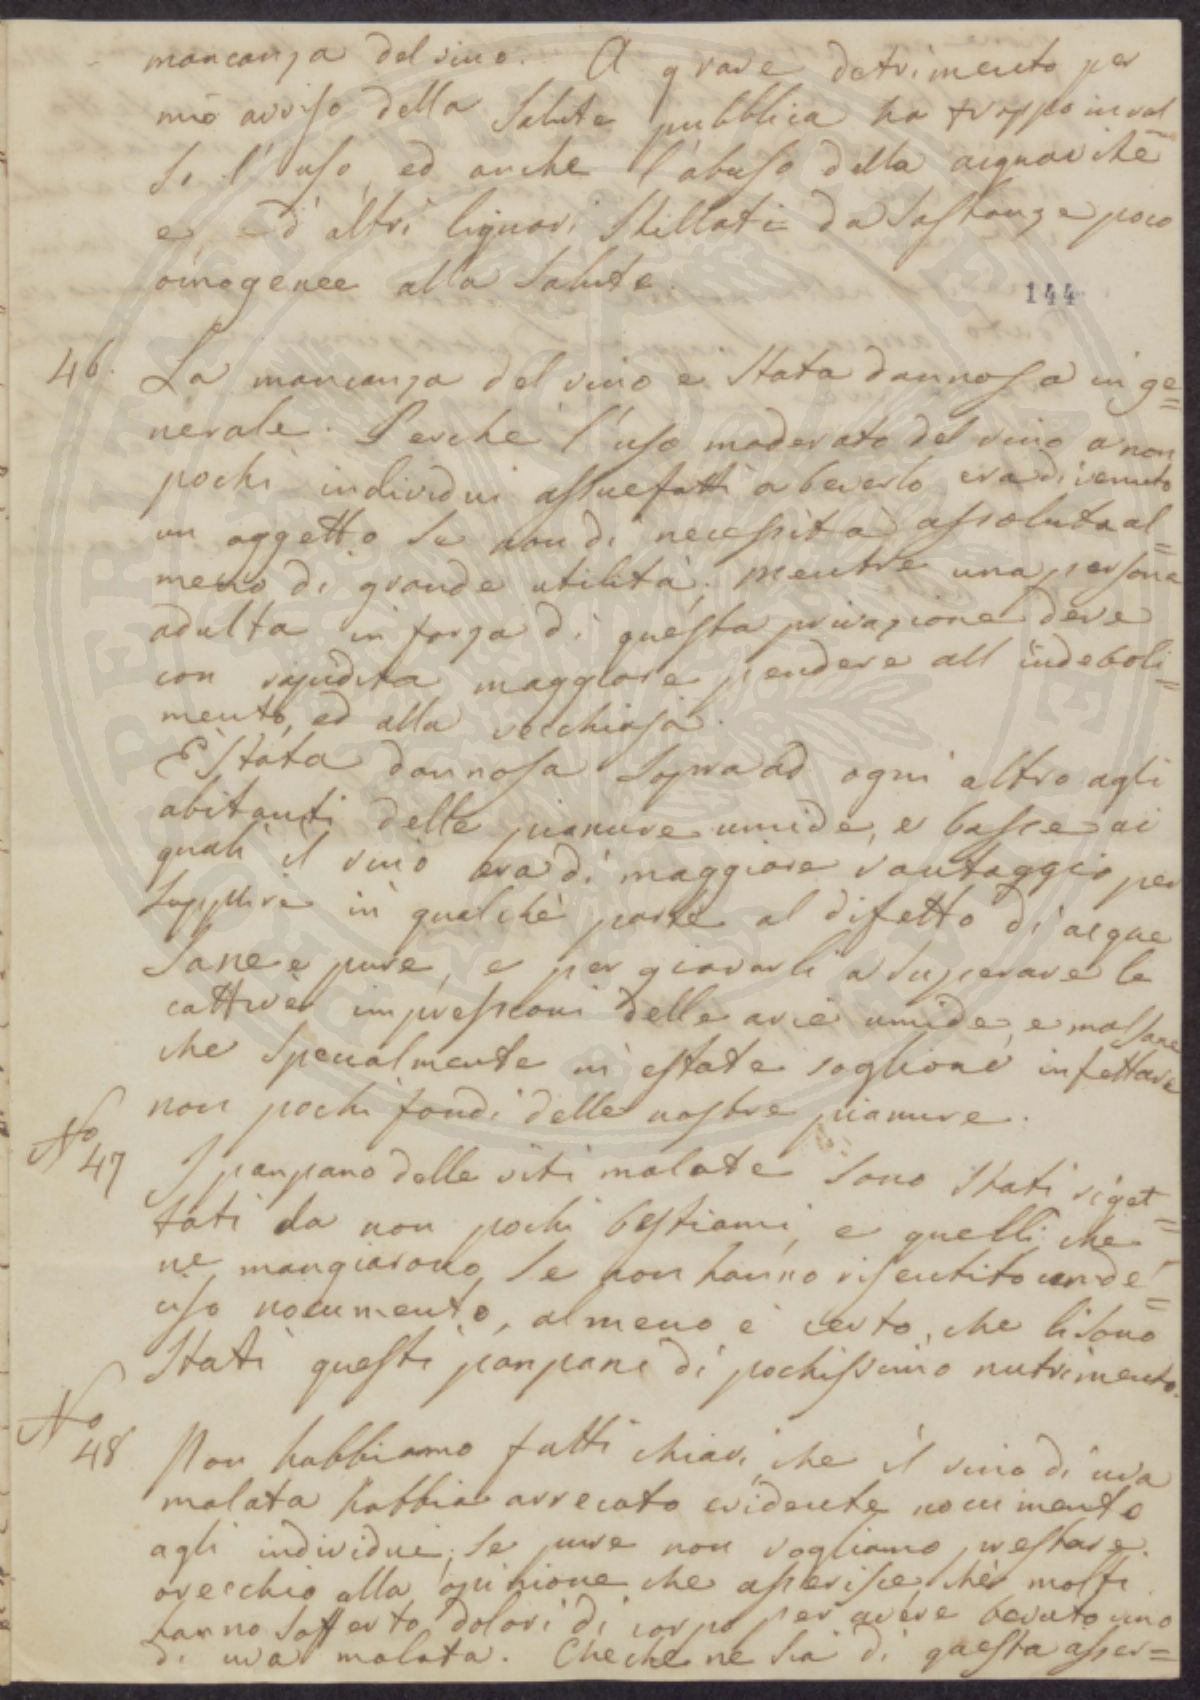 mancanza del vino. A grave detrimento per
mio avviso della Salute pubblica ha troppo inval
So l'uso, ed anche l'abuso della acquavite
e d'altri liquori Stillati da Sostanze poco
omogenee alla Salute.
144
46. La mancanza del vino è Stata dannosa in ge=
nerale. Perchè l'uso moderato del vino a non
pochi individui assuefatti a beverlo era divenuto
un oggetto se non di necessità assoluta al=
meno di grande utilità; mentre una persona
adulta in forza di questa privazione deve
con rapidità maggiore pendere all indeboli=
mento, ed alla vecchiaja.
È Stata dannosa Sopra ad ogni altro agli
abitanti delle pianure umide, e basse ai
quali il vino era di maggiore vantaggio per
Supplire in qualche parte al difetto di acque
Sane e pure, e per giovarli a Superare le
cattive impressioni delle arie umide, e malsane
che Specialmente in estate sogliono infettare
non pochi fondi delle nostre pianure.
No 47 I panpano delle viti malate Sono Stati riget=
tati da non pochi bestiami, e quelli che
ne mangiarono, Se non hanno risentito un de=
ciso nocumento, almeno è certo, che li Sono
Stati questi panpani di pochissimo nutrimento.
No 48 Non habbiamo fatti chiari, che il vino di uva
malata habbia arrecato evidente nocumento
agli individui; Se pure non vogliamo prestare
orecchio alla opinione che asserisce che molti
hanno Sofferto dolori di corpo per avere bevuto vino
di uva malata. Checche ne Sia di questa asser=